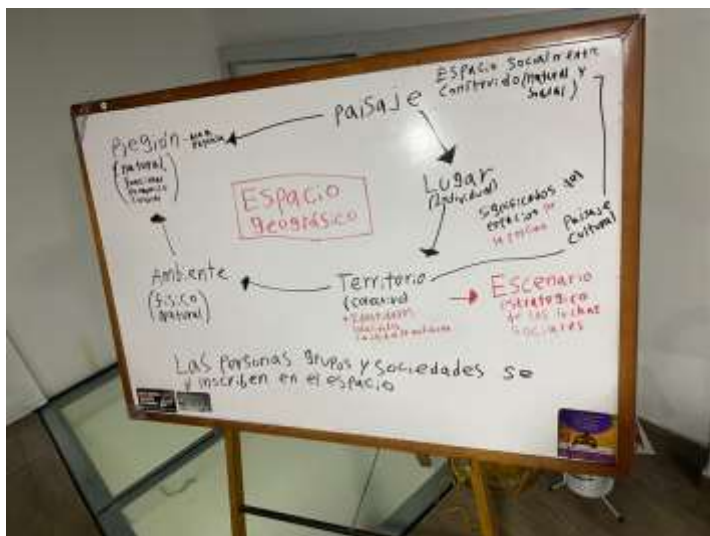 ESPACIO Socialmente
Construido (natural y
Social)
Paisaje
Región
(natural,
Lugar
(Individual)
ESPACIO
geográfico
Significados
espacios
Paisaje
Cultural
Ambiente
(físico
natural)
Territorio
(colectivo)
Escenario
estratégico
de las luchas
Sociales
Las Personas grupos y sociedades se
y inscriben en el espacio